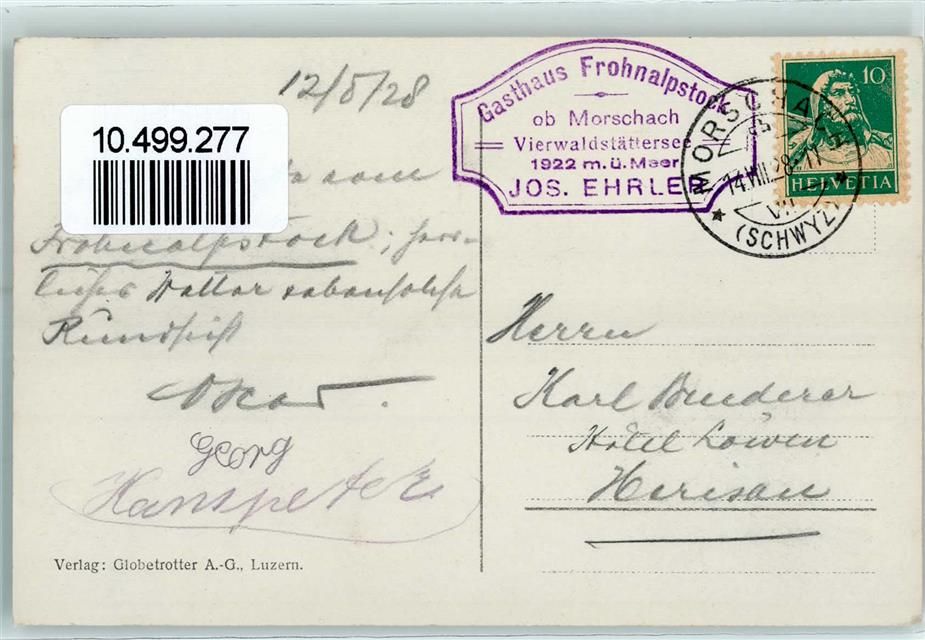 12/8/28
10.499.277
vom
Frohnalpstock; herr-
liches Wetter
Rundsicht
Oskar.
Georg
Hanspeter
Verlag: Globetrotter A.-G., Luzern.
Gasthaus Frohnalpstock
ob Morschach
Vierwaldstättersee
1922 m. ü. Meer
JOS. EHRLER
MORSCHACH
14.VIII.28
(SCHWYZ)
10
HELVETIA
Herrn
Karl Bruderer
Hotel Löwen
Herisau